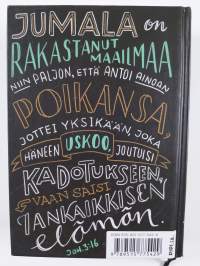 JUMALA on
RAKASTANUT
MAAILMAA
NIIN PALJON, ETTÄ ANTOI AINOAN
POIKANSA,
JOTTEI YKSIKÄÄN, JOKA
HÄNEEN USKOO, JOUTUISI
KADOTUKSEEN,
VAAN SAISI
IANKAIKKISEN
elämän.
JOH. 3:16